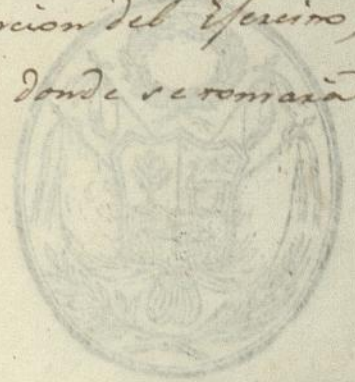 cion del Ejercito,
donde se tomará